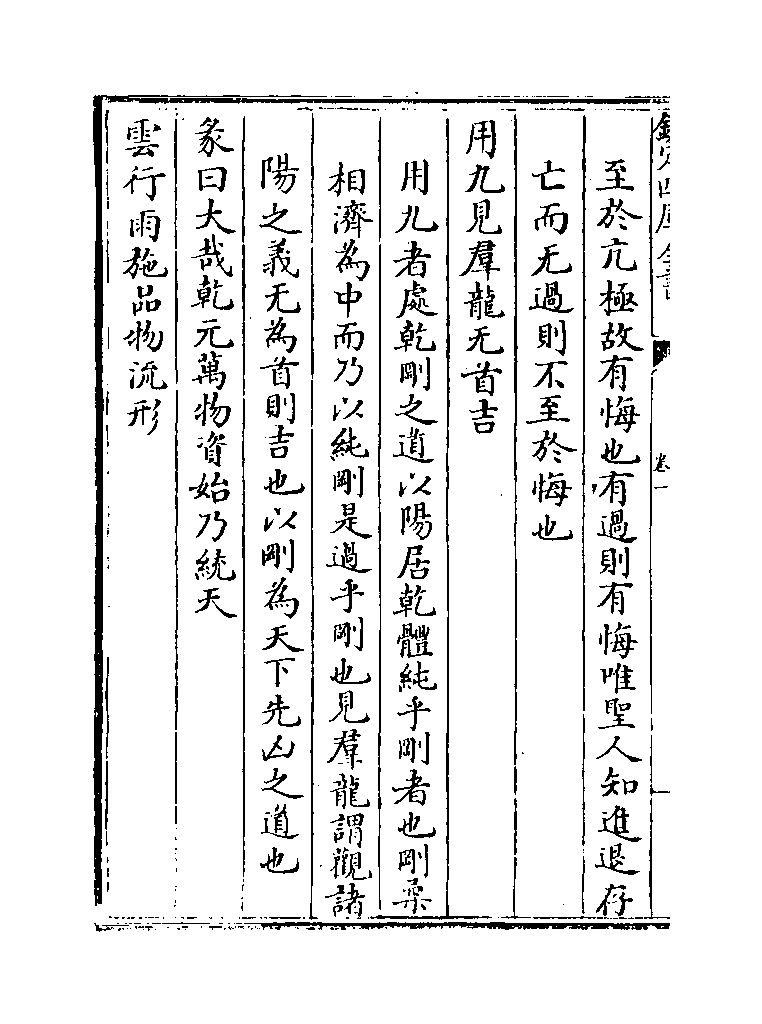 欽定四庫全書
卷一
至於亢極故有悔也有過則有悔唯聖人知進退存
亡而无過則不至於悔也
用九見羣龍无首吉
用九者處乾剛之道以陽居乾體純乎剛者也剛柔
相濟為中而乃以純剛是過乎剛也見羣龍謂觀諸
陽之義无為首則吉也以剛為天下先凶之道也
彖曰大哉乾元萬物資始乃統天
雲行雨施品物流形